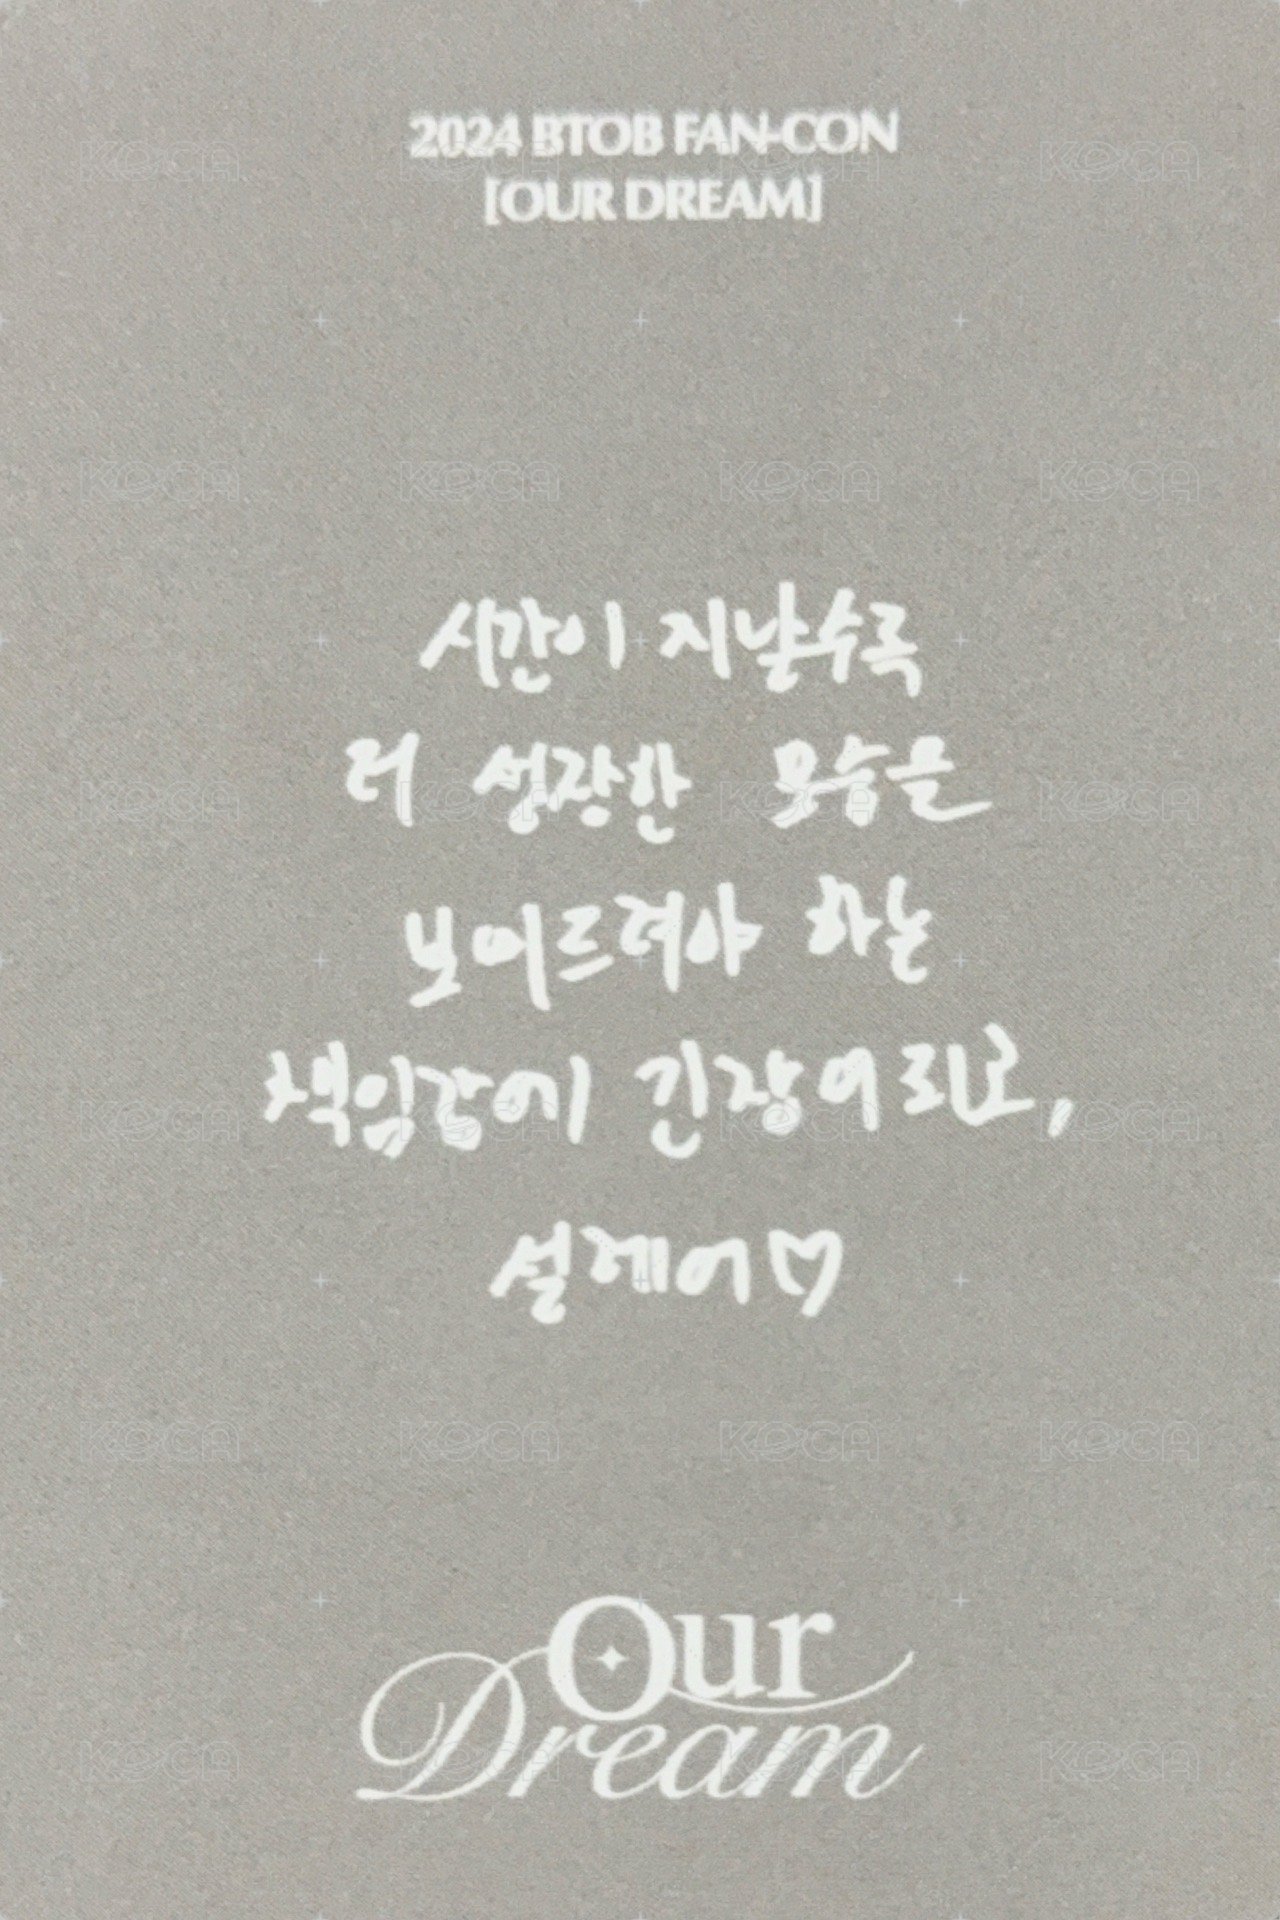 2024 BTOB FAN-CON
[OUR DREAM]
시간이 지날수록
더 성장한 모습을
보여드려야 하는
책임감에 긴장이 되고,
설레어♡
Our
Dream
KOCA